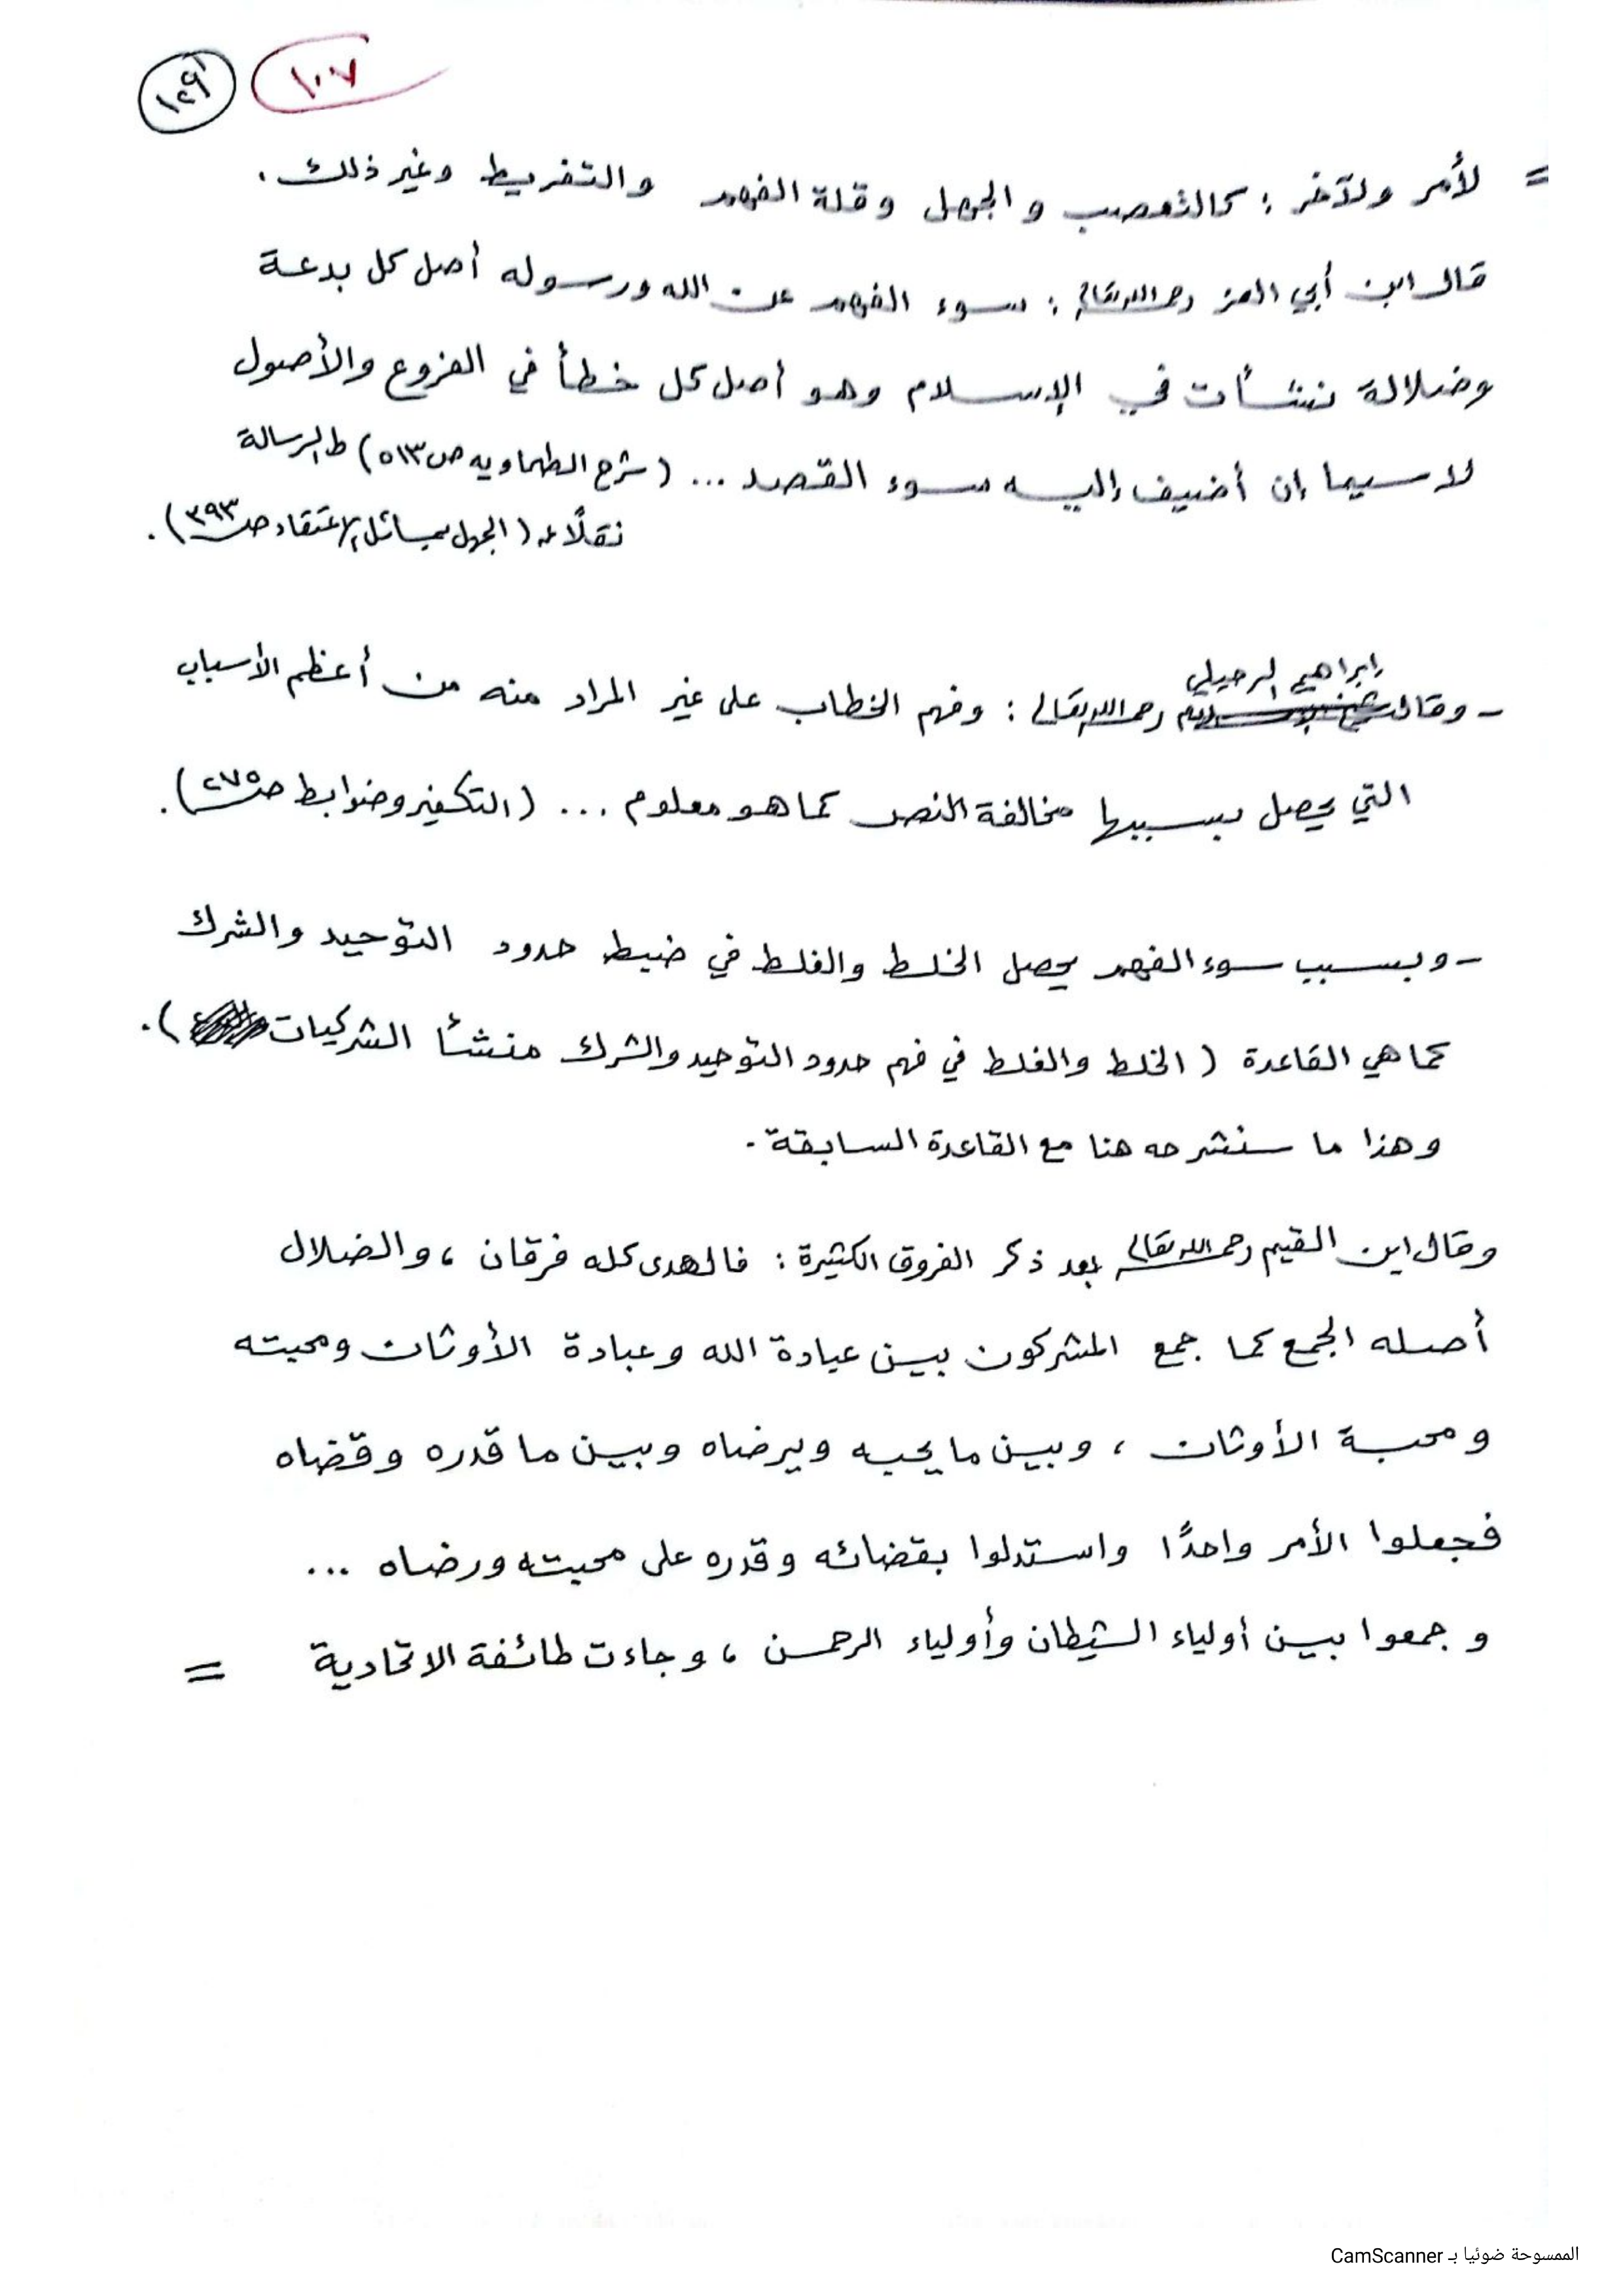 ١٠٧ ١٢٩
= لأمر ولآخر ؛ كالتعصب والجهل وقلة الفهم والتفريط وغير ذلك .
قال ابن أبي العز رحمه الله تعالى : سوء الفهم عن الله ورسوله أصل كل بدعة
وضلالة نشأت في الإسلام وهو أصل كل خطأ في الفروع والأصول
لا سيما إن أضيف إليه سوء القصد ... ( شرح الطحاويه ص ٥١٣ ) ط الرسالة
نقلًا عن ( الجهل بمسائل الاعتقاد ص ٣٩٣ ) .
إبراهيم الرحيلي
- وقال رحمه الله تعالى : وفهم الخطاب على غير المراد منه من أعظم الأسباب
التي يحصل بسببها مخالفة النص كما هو معلوم ... ( التكفير وضوابط ص ٢٧٥ ) .
- وبسبب سوء الفهم يحصل الخلط والغلط في ضبط حدود التوحيد والشرك
كما هي القاعدة ( الخلط والغلط في فهم حدود التوحيد والشرك منشأ الشركيات ) .
وهذا ما سنشرحه هنا مع القاعدة السابقة .
وقال ابن القيم رحمه الله تعالى بعد ذكر الفروق الكثيرة : فالهدى كله فرقان ، والضلال
أصله الجمع كما جمع المشركون بين عبادة الله وعبادة الأوثان ومحبته
ومحبة الأوثان ، وبين ما يحبه ويرضاه وبين ما قدره وقضاه
فجعلوا الأمر واحدًا واستدلوا بقضائه وقدره على محبته ورضاه ...
وجمعوا بين أولياء الشيطان وأولياء الرحمن ، وجاءت طائفة الاتحادية =
الممسوحة ضوئيا بـ CamScanner